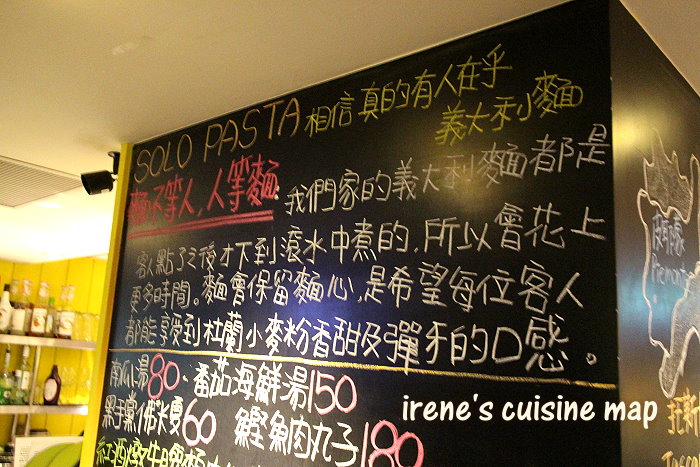 SOLO PASTA 相信真的有人在乎
義大利小麵
麵不等人,人等麵.我們家的義大利麵都是
客人點了之後才下到滾水中煮的,所以會花上
更多時間。麵會保留麵心,是希望每位客人
都能享受到杜蘭小麥粉香甜及彈牙的口感。
南瓜湯80.番茄海鮮湯150
60 鰹魚肉丸子180
紅酒燉牛
皮耶蒙
Piemon
托斯
irene's cuisine map